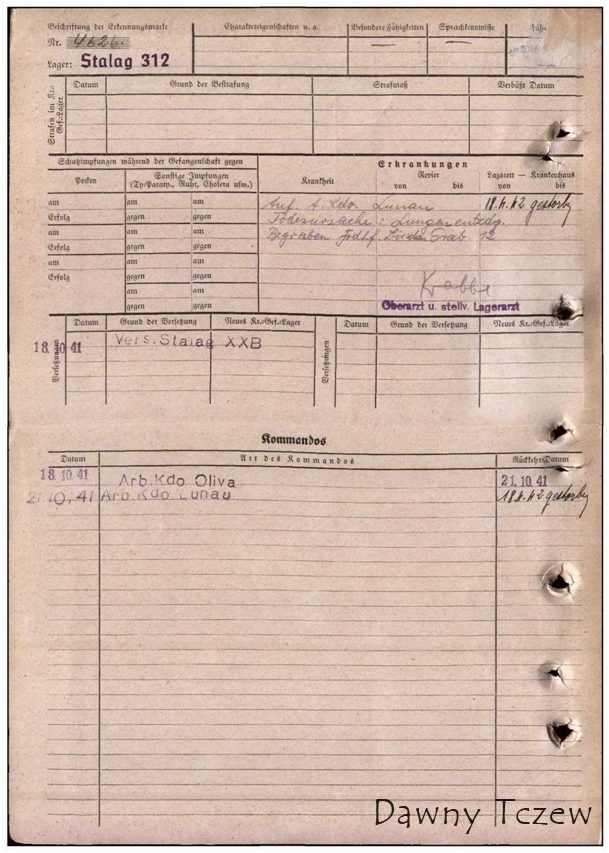 Beschriftung der Erkennungsmarke
Nr. 4626.
Lager: Stalag 312
Charaktereigenschaften u. a.
Besondere Fähigkeiten
Sprachkenntnisse
Strafen im Kr.-Gef.-Lager
Datum
Grund der Bestrafung
Strafmaß
Verbüßt Datum
Schutzimpfungen während der Gefangenschaft gegen
Erkrankungen
Pocken
Sonstige Impfungen
(Ty.-Paraty., Ruhr, Cholera usw.)
Krankheit
Revier
von bis
Lazarett — Krankenhaus
von bis
am am am
Erfolg gegen gegen
am am am
Erfolg gegen gegen
am am am
Erfolg gegen gegen
am am
gegen gegen
Auf A. Kdo. Lunau 18.4.42 gestorben
Todesursache: Lungenentzdg.
Begraben Frdhf. Grab 12
Krabbe
Oberarzt u. stellv. Lagerarzt
Versetzungen
Datum
Grund der Versetzung
Neues Kr.-Gef.-Lager
Versetzungen
Datum
Grund der Versetzung
Neues Kr.-Gef.-Lager
18.10.41 Vers. Stalag XXB
Kommandos
Datum
Art des Kommandos
Rückkehr-Datum
18.10.41 Arb.Kdo Oliva 21.10.41
21.10.41 Arb.Kdo Lunau 18.4.42 gestorben
Dawny Tczew